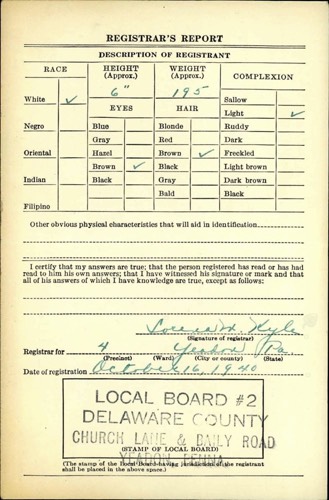 REGISTRAR'S REPORT
DESCRIPTION OF REGISTRANT
RACE
HEIGHT (Approx.)
WEIGHT (Approx.)
COMPLEXION
White ✓
6"
195
Sallow
Light ✓
EYES
HAIR
Negro
Blue
Blonde
Ruddy
Gray
Red
Dark
Oriental
Hazel
Brown ✓
Freckled
Brown ✓
Black
Light brown
Indian
Black
Gray
Dark brown
Bald
Black
Filipino
Other obvious physical characteristics that will aid in identification
I certify that my answers are true; that the person registered has read or has had
read to him his own answers; that I have witnessed his signature or mark and that
all of his answers of which I have knowledge are true, except as follows:
Kyle
(Signature of registrar)
Registrar for 4 Yeadon Pa
(Precinct) (Ward) (City or county) (State)
Date of registration October 16, 1940
LOCAL BOARD #2
DELAWARE COUNTY
CHURCH LANE & BAILY ROAD
(STAMP OF LOCAL BOARD)
YEADON PENNA
(The stamp of the Local Board having jurisdiction of the registrant
shall be placed in the above space.)